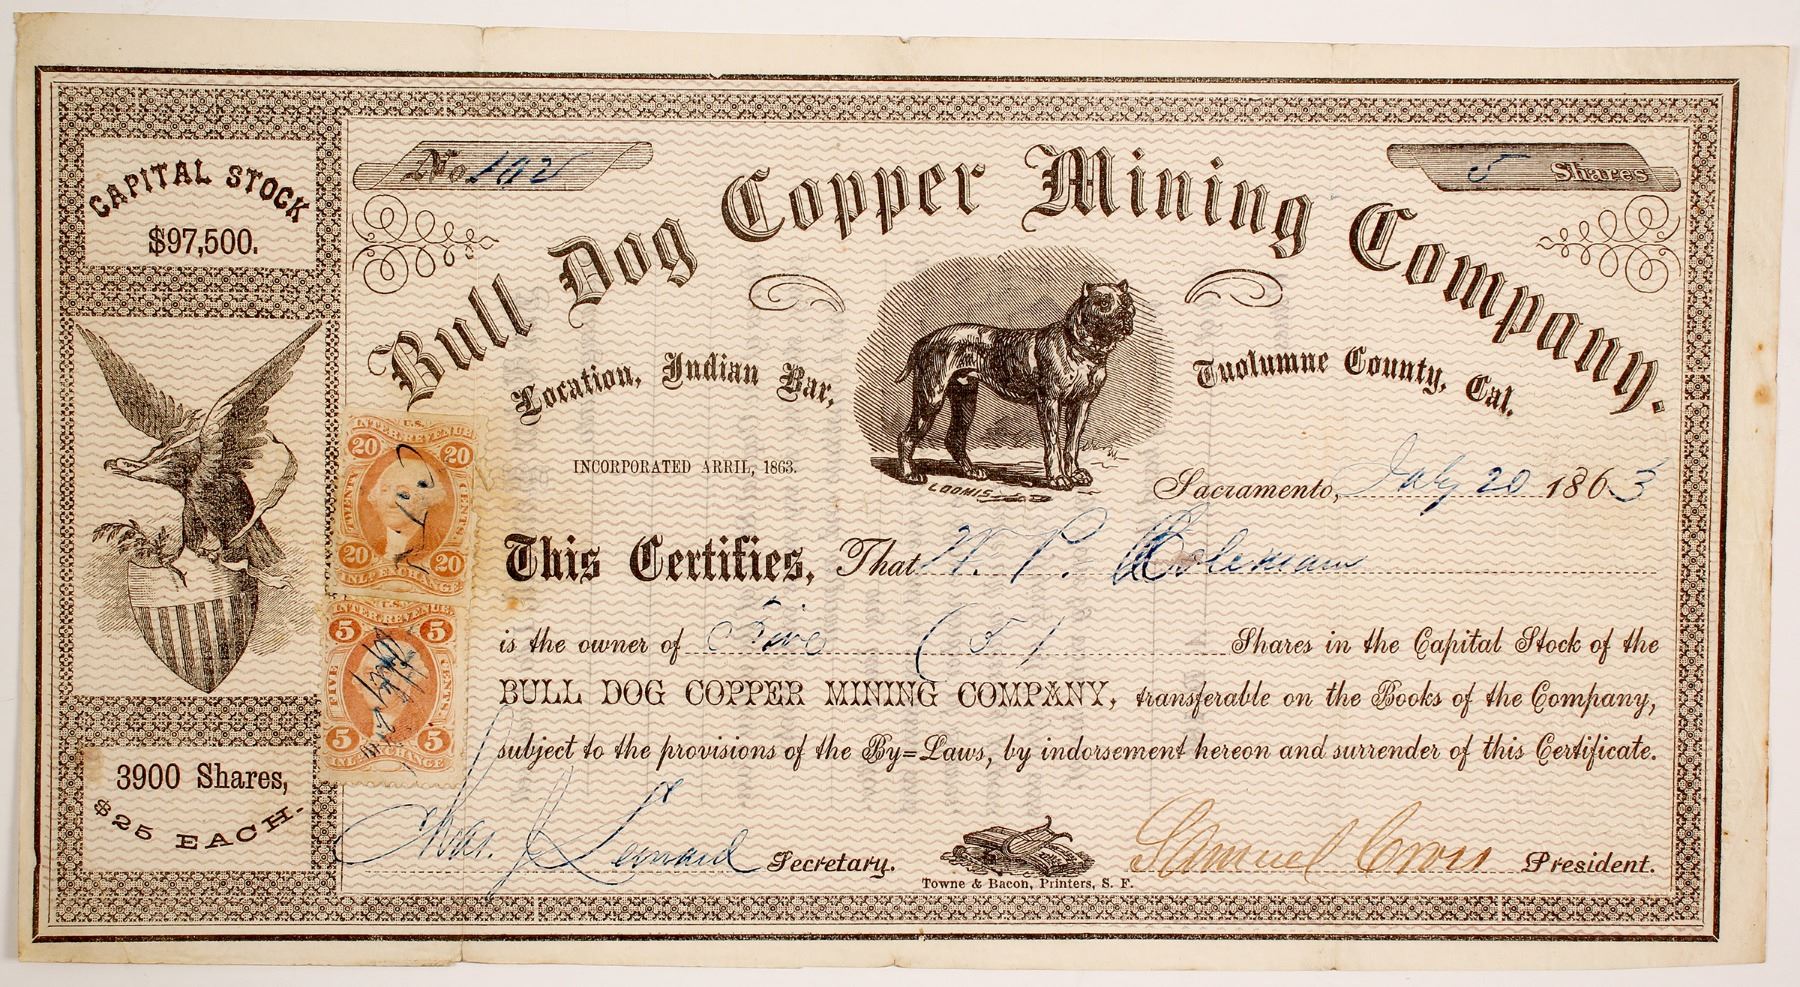 CAPITAL STOCK
$97,500.
3900 Shares,
$25 EACH.
No. 102
5 Shares
Bull Dog Copper Mining Company.
Location, Indian Bar, Tuolumne County, Cal.
INCORPORATED ARRIL, 1863.
LOOMIS
Sacramento, July 20 1863
This Certifies, That W. P. Coleman
is the owner of Five (5) Shares in the Capital Stock of the
BULL DOG COPPER MINING COMPANY, transferable on the Books of the Company,
subject to the provisions of the By=Laws, by indorsement hereon and surrender of this Certificate.
Chas. J. Leonard Secretary.
Samuel Cross President.
Towne & Bacon, Printers, S. F.
U.S.
INTER. REVENUE
20 20
TWENTY CENTS
20 20
INL. EXCHANGE
U.S.
INTER. REVENUE
5 5
FIVE CENTS
5 5
INL. EXCHANGE